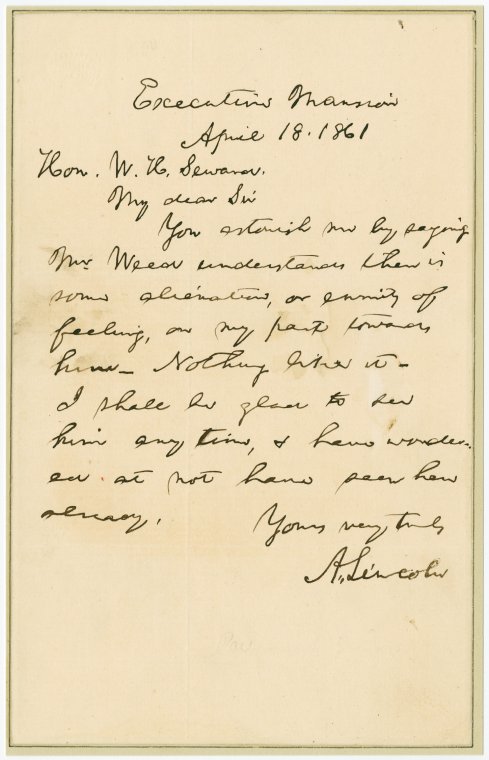 Executive Mansion
April 18. 1861
Hon. W. H. Seward.
My dear Sir
You astonish me by saying
Mr. Weed understands there is
some alienation, or enmity of
feeling, on my part towards
him_ Nothing like it_
I shall be glad to see
him any time, & have wonder-
ed at not have seen him
already.
Yours very truly
A. Lincoln